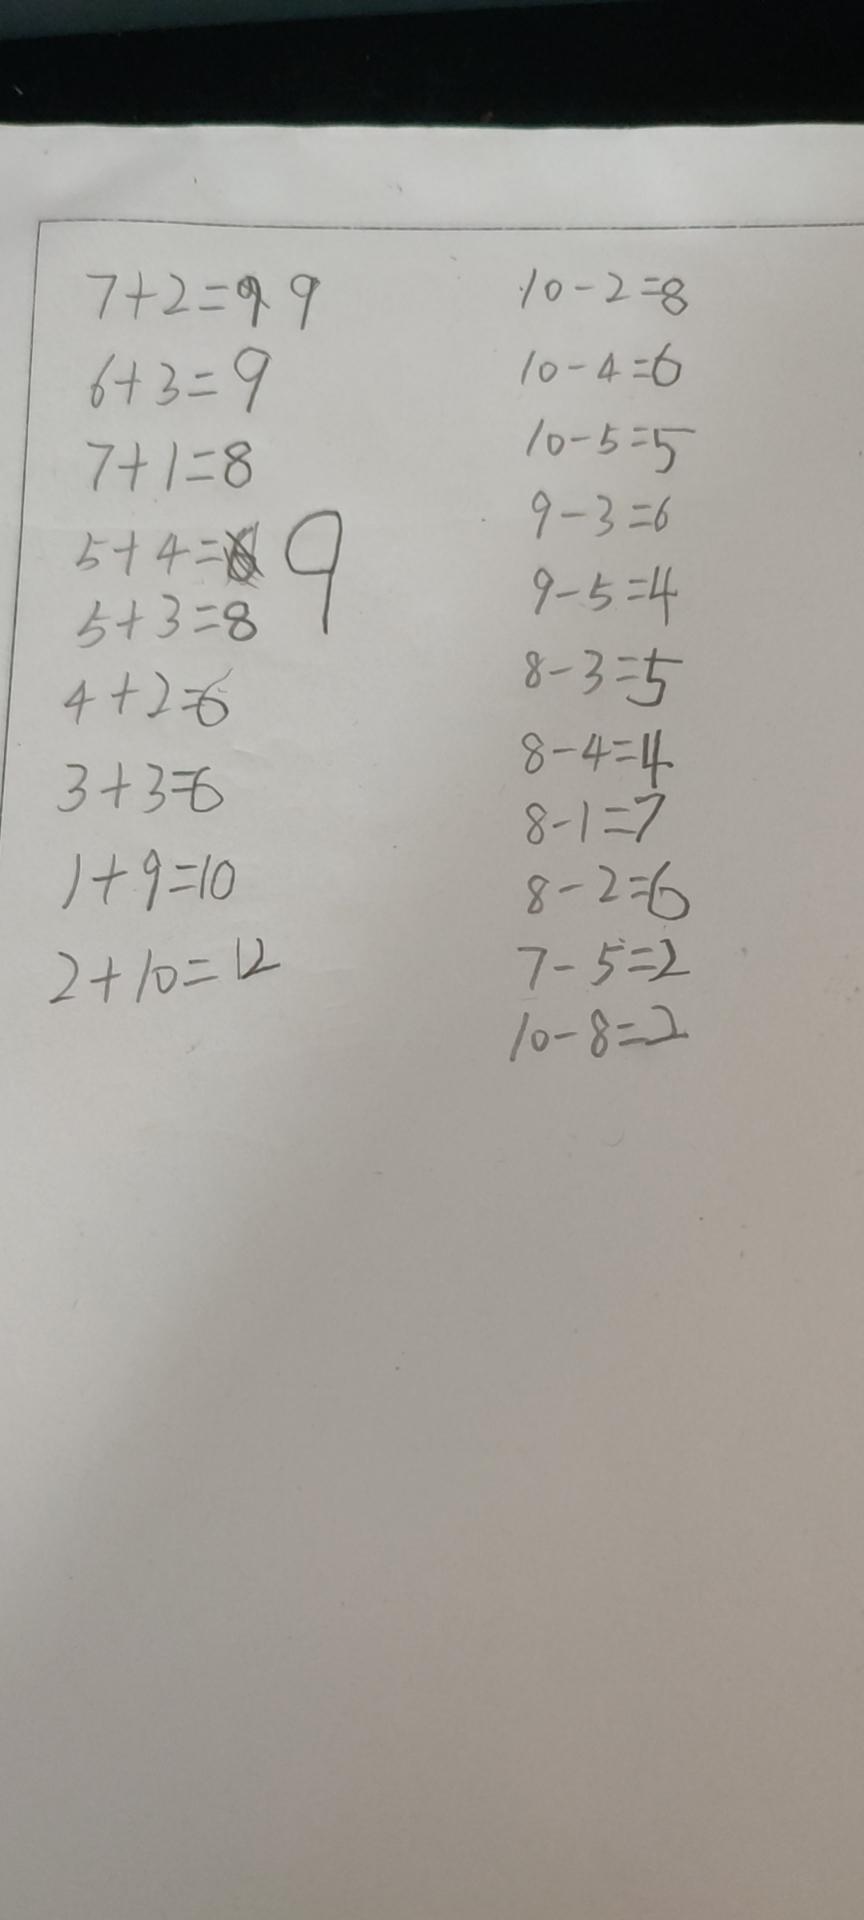 7+2=9 9
6+3=9
7+1=8
5+4=9
5+3=8
4+2=6
3+3=6
1+9=10
2+10=12
10-2=8
10-4=6
10-5=5
9-3=6
9-5=4
8-3=5
8-4=4
8-1=7
8-2=6
7-5=2
10-8=2